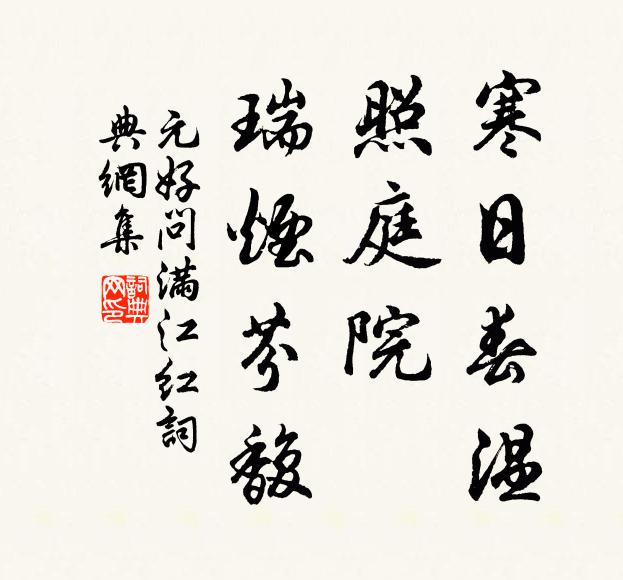 寒日春温
照庭院
瑞煙芬馥
元好问满江红詞
典網集
詞典
网印